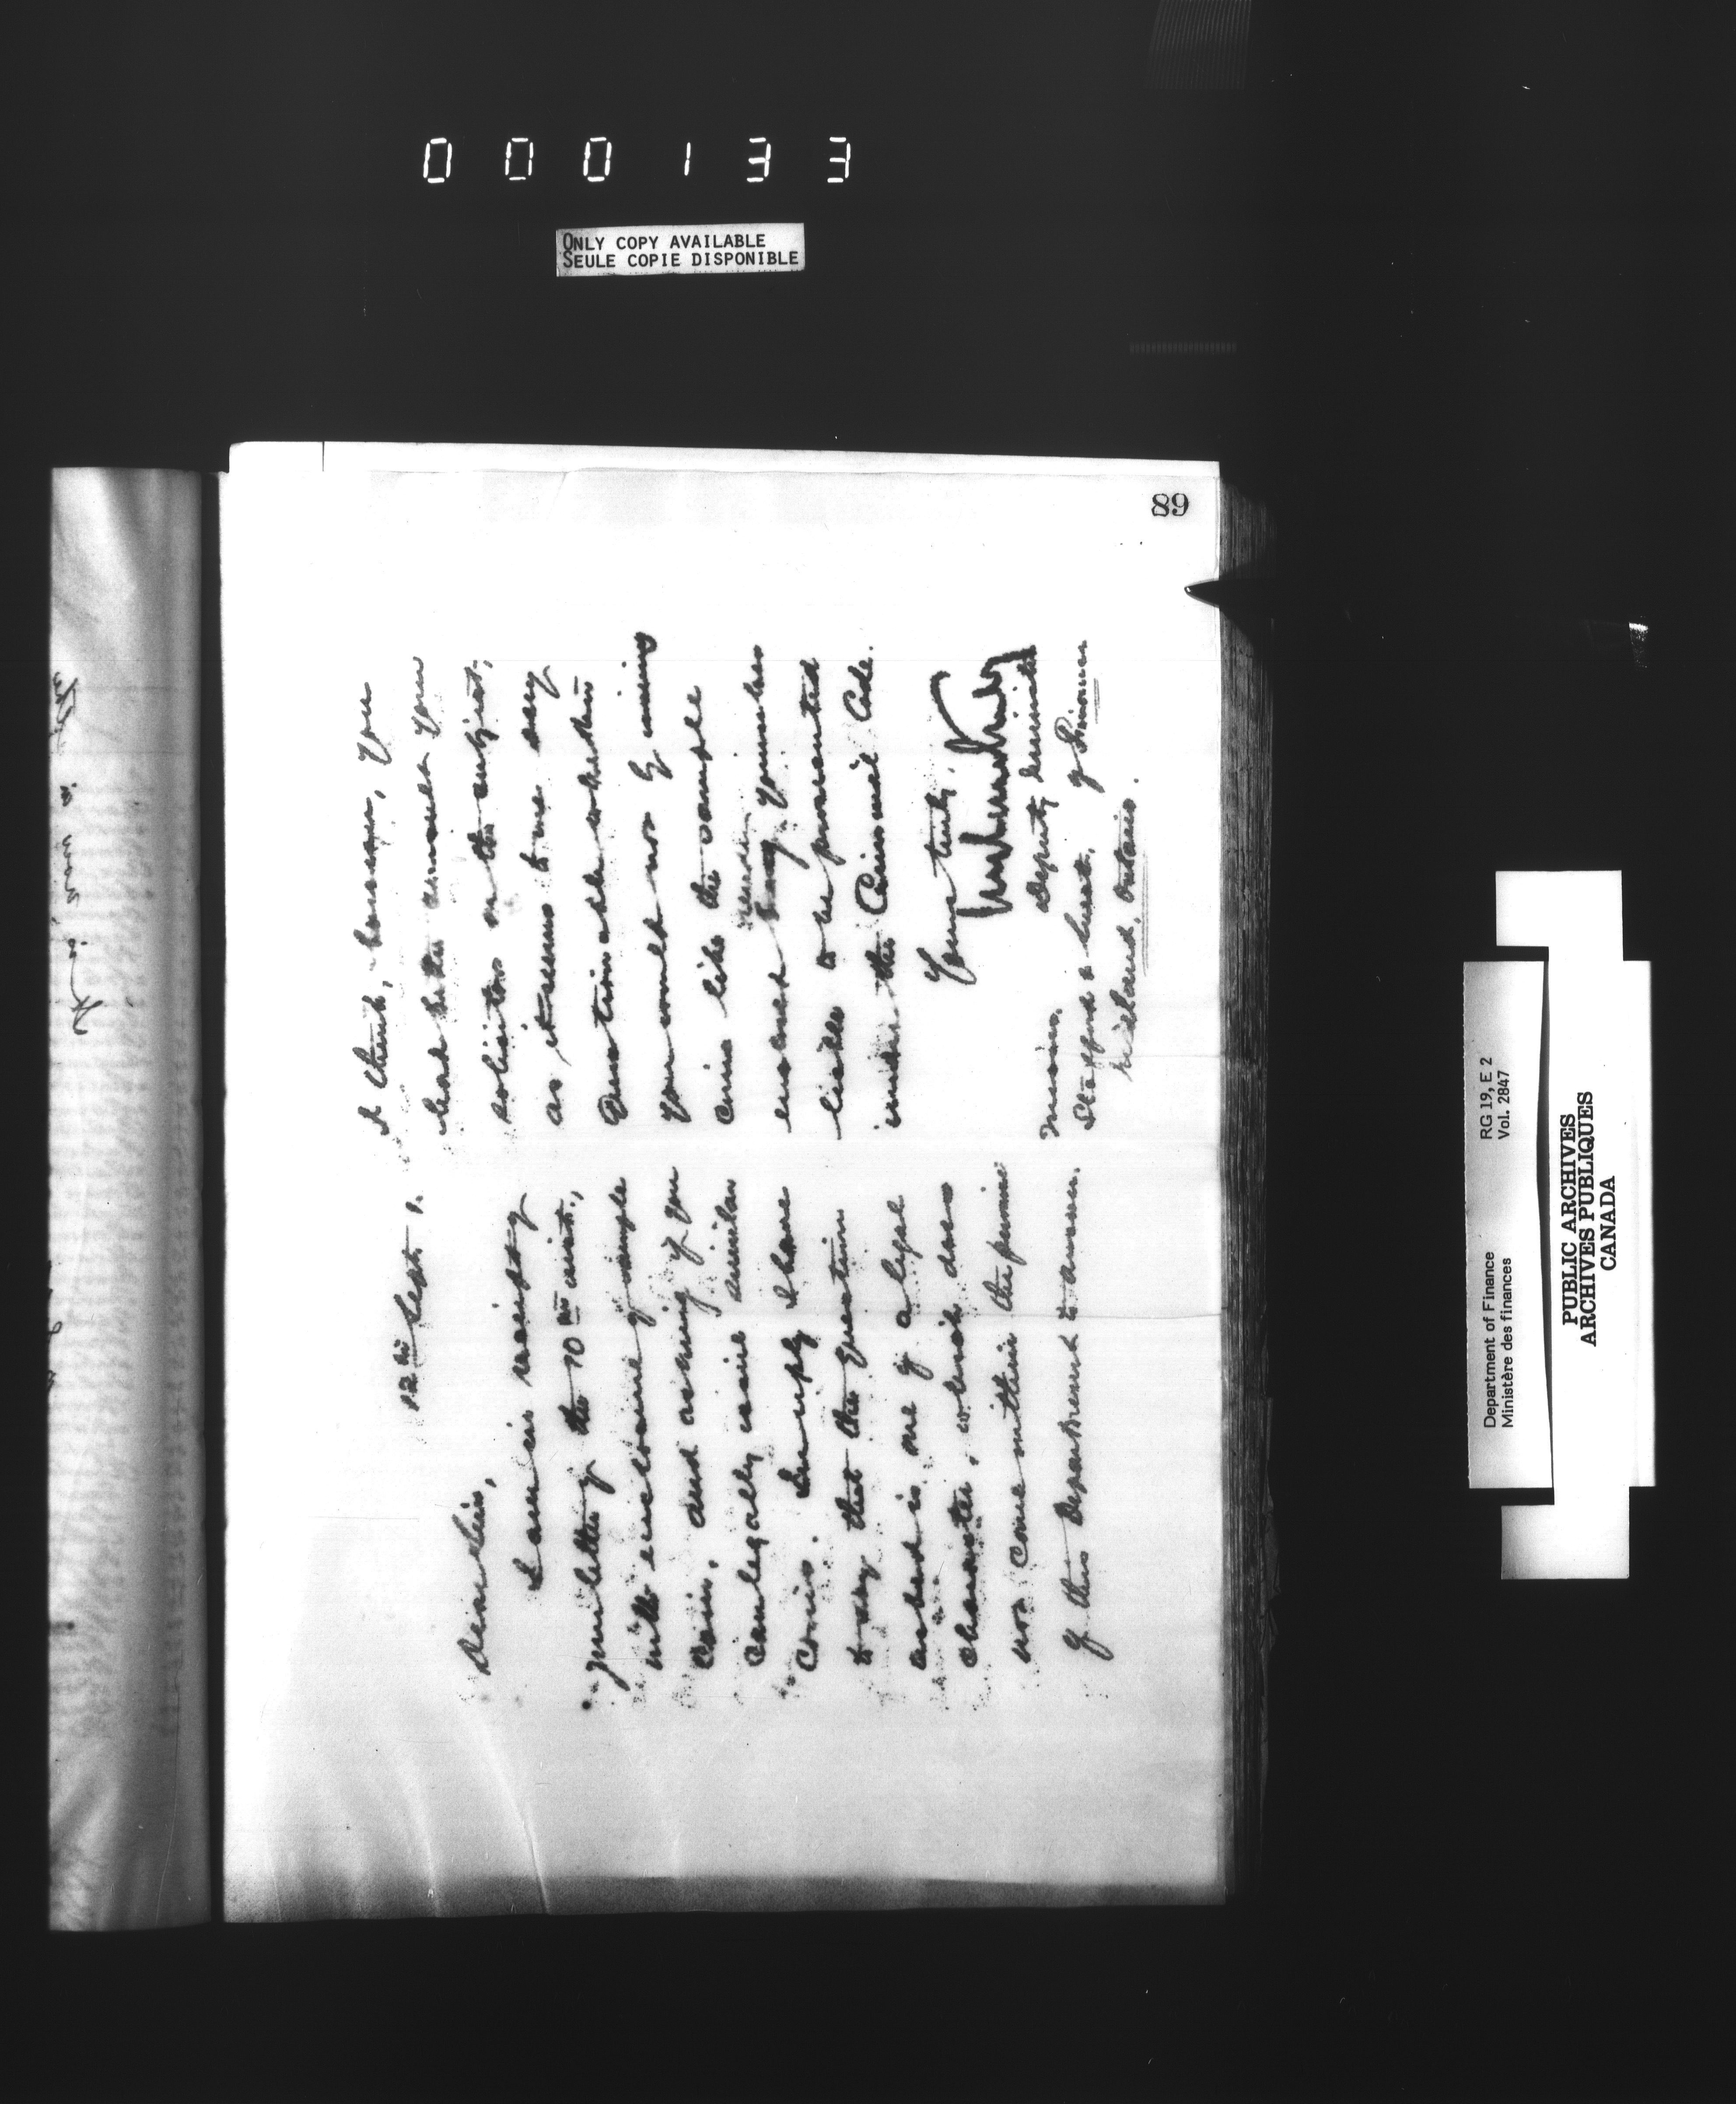 000133
ONLY COPY AVAILABLE
SEULE COPIE DISPONIBLE
89
12th Sept. 1.
Dear Sirs,
I am in receipt of
your letter of the 10th inst.,
with enclosure of sample
Coin, and asking if you
Can legally coin similar
Coins. In reply I have
to say that the question
asked is one of a legal
character, which does
not come within the province
of this Department to answer.
I think, however, you
had better consult your
solicitor on the subject,
as it seems to me very
Questionable whether
you would not by coining
Coins like the sample
enclosed render yourselves
liable to be prosecuted
under the Criminal Code.
Yours truly,
Deputy Minister
of Finance
Messrs.
Stafford &
Midland, Ontario.
Department of Finance
Ministère des finances
RG 19, E 2
Vol. 2847
PUBLIC ARCHIVES
ARCHIVES PUBLIQUES
CANADA